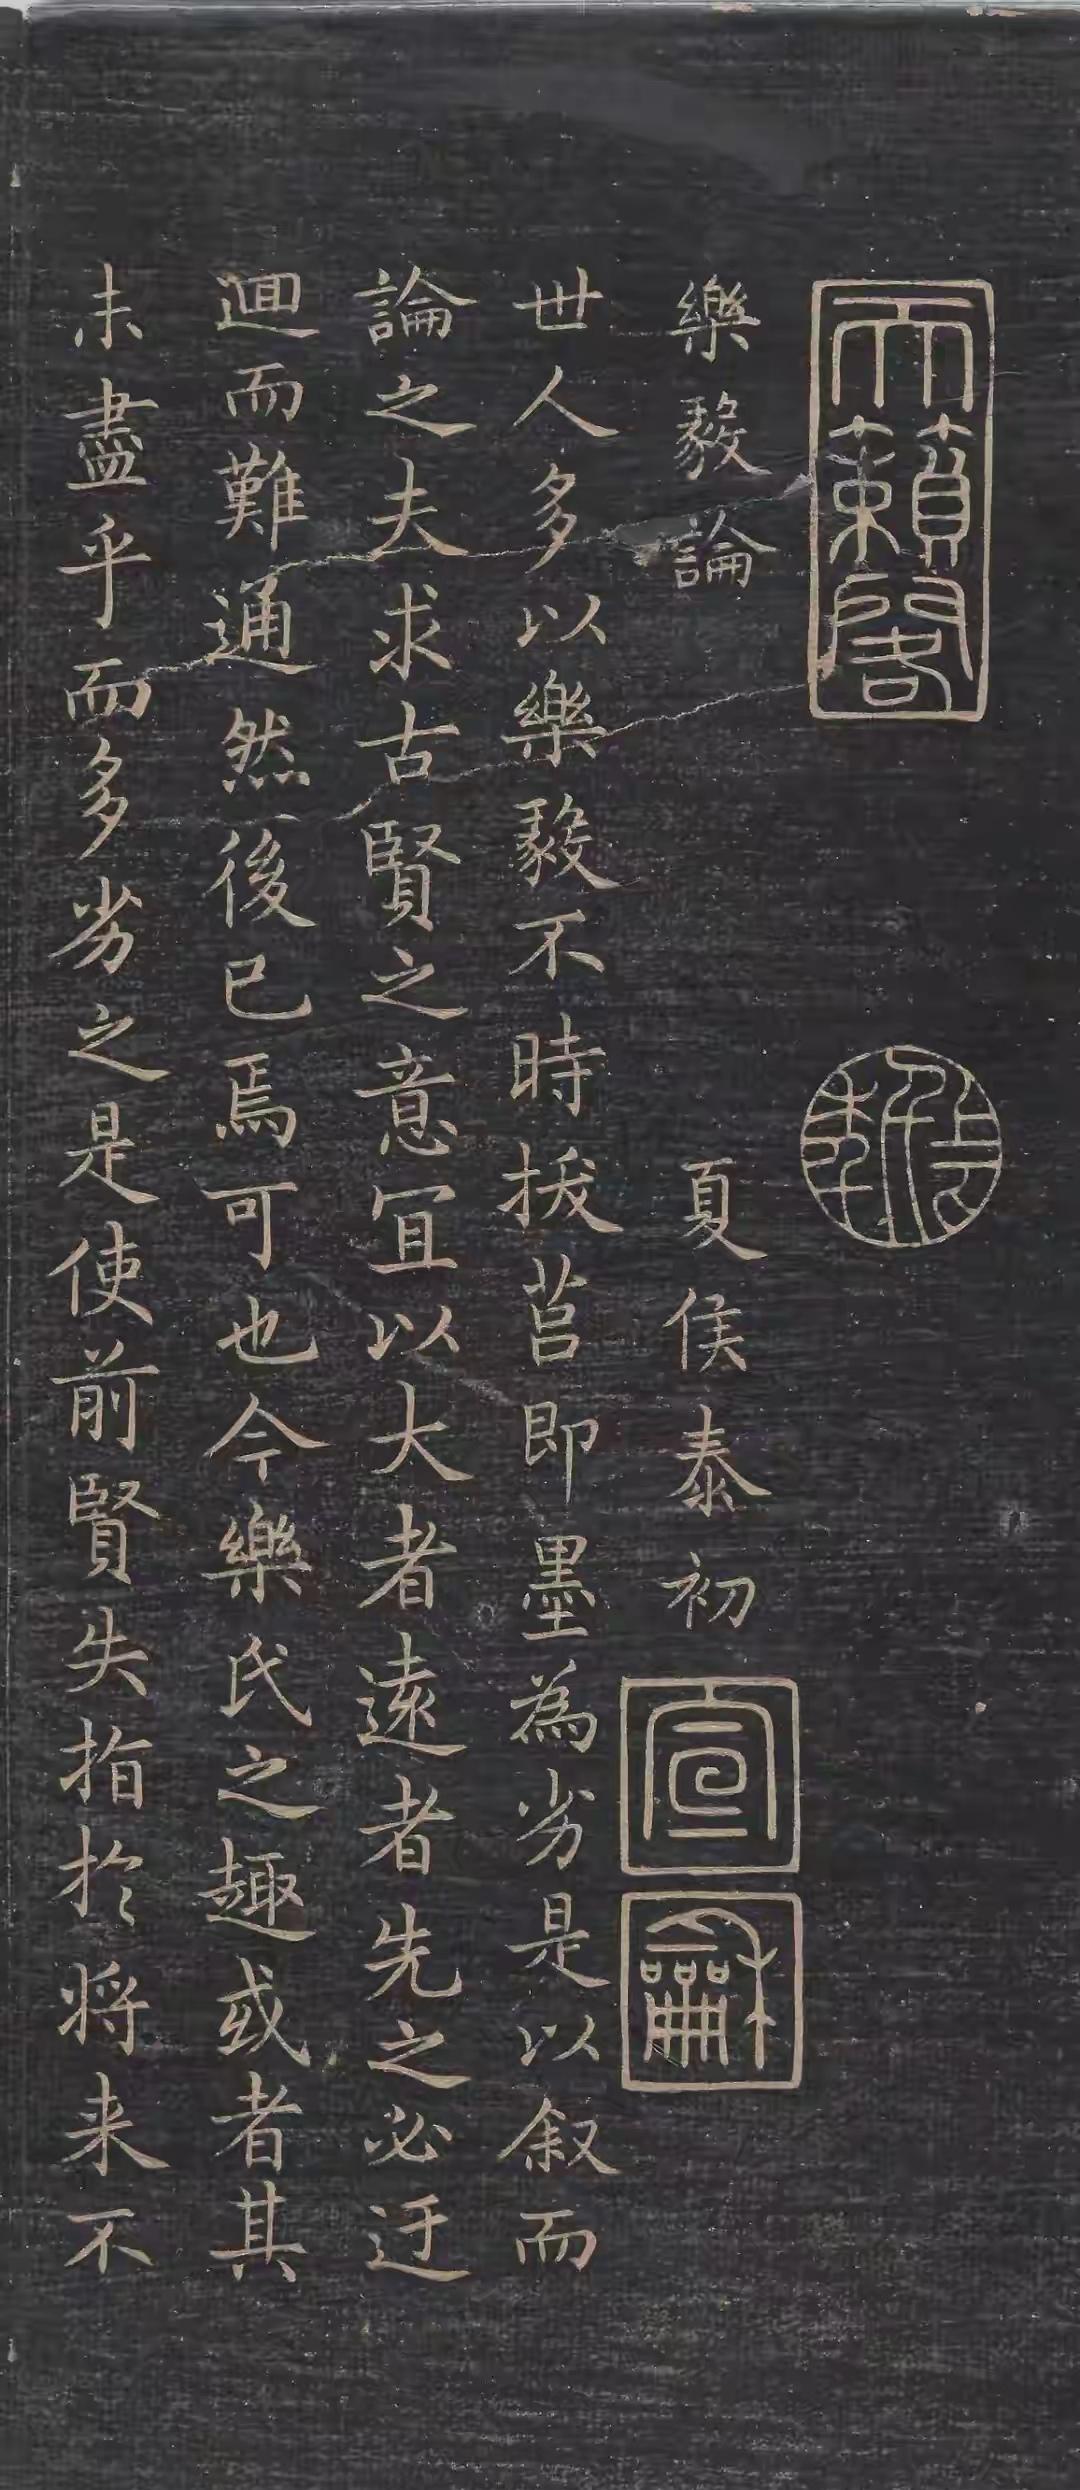 天籟閣
樂毅論 夏侯泰初
宣
龢
世人多以樂毅不時拔莒即墨為劣是以叙而
論之夫求古賢之意宜以大者遠者先之必迂
迴而難通然後已焉可也今樂氏之趣或者其
未盡乎而多劣之是使前賢失指於將来不